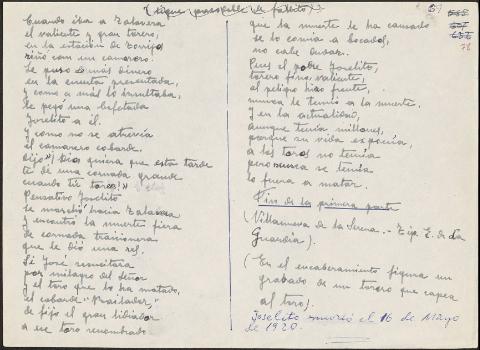 (sigue pasapelle de follito)
Cuando iba a Talavera
el valiente y gran torero,
en la estación de Torrijo
riñó con un camarero.
Le puso de más dinero
en la cuenta presentada,
y como a más lo insultaba,
le pegó una bofetada
Joselito a él.
Y como no se atrevía
el camarero cobarde
dijo "¡Dios quiera que esta tarde
te dé una cornada grande
cuando tú torees!"
Pensativo Joselito
se marchó hacia Talavera
y encontró la muerte fiera
de cornada traicionera
que le dió una res.
Si José resucitara
por milagro del Señor
y el toro que lo ha matado,
el cobarde "Bailador,"
de fijo el gran lidiador
a ese toro renombrado
que la muerte le ha causado
se lo comía a bocados,
no cabe dudar.
Pues el pobre Joselito,
torero fino, valiente,
al peligro hizo frente,
nunca le temió a la muerte,
y en la actualidad,
aunque tenía millones,
porque su vida exponía,
a los toros no temía
pero nunca se temía
lo fuera a matar.
Fin de la primera parte
(Villanueva de la Serena.- Tip. E. de La
Guardia).
(En el encabezamiento figura un
grabado de un torero que capea
al toro).
Joselito murió el 16 de Mayo
de 1920.